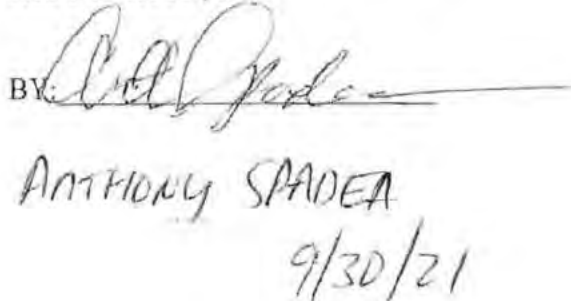 BY:
ANTHONY SPADEA
9/30/21